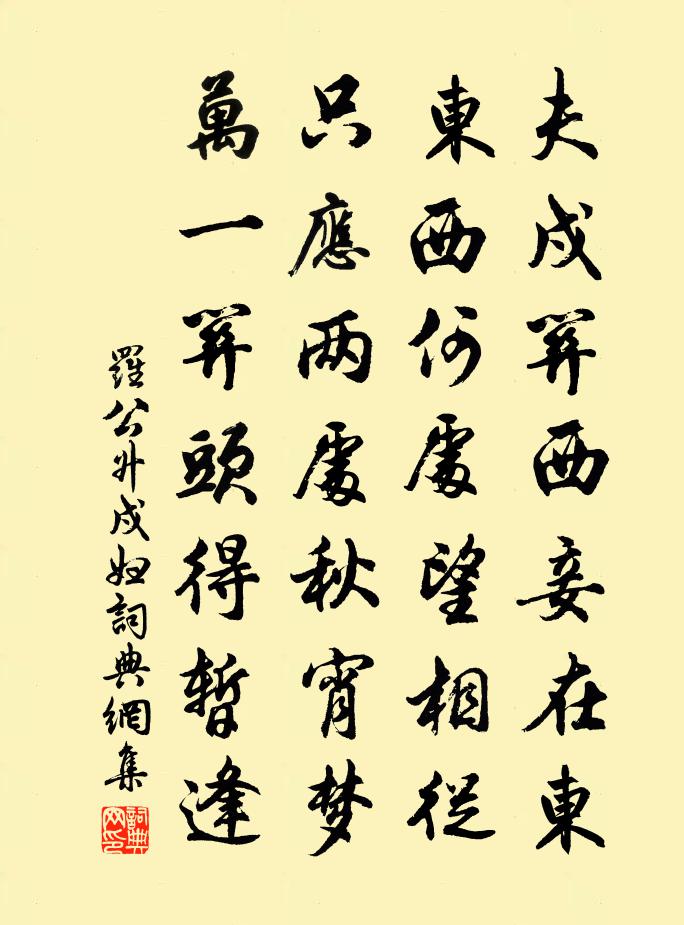 夫戍關西妾在東
東西何處望相從
只應两處秋宵梦
萬一關頭得暫逢
羅公升戍婦詞典網集
詞典网印